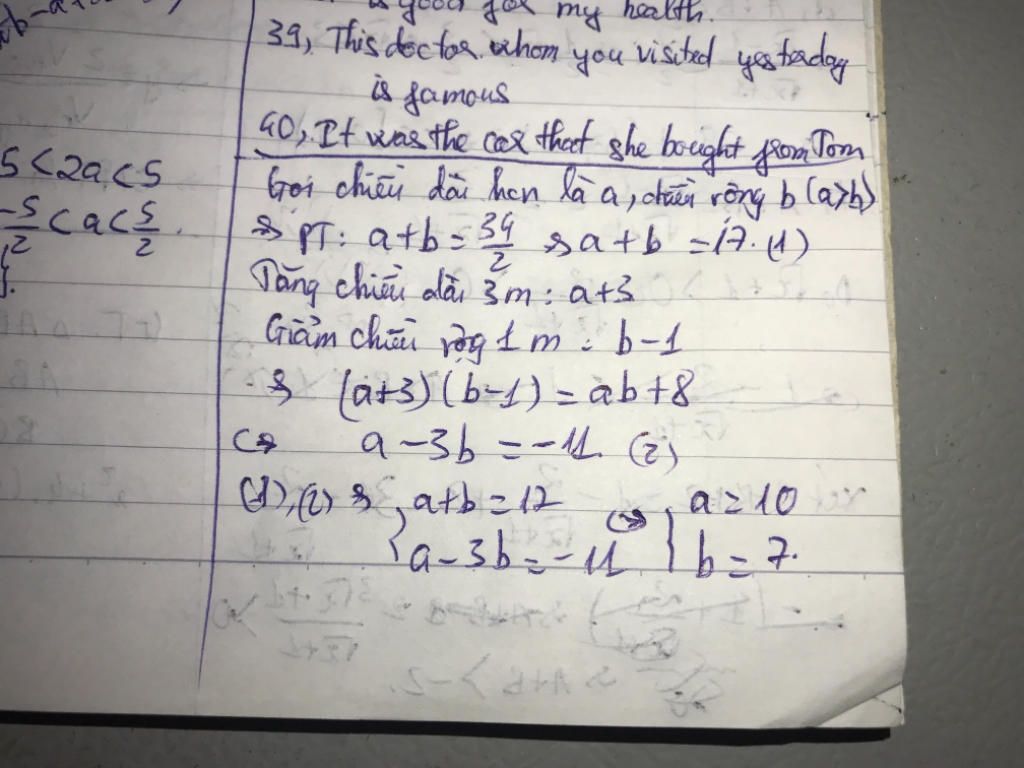 is good for my health.
39, This doctor whom you visited yesterday
is famous
40, It was the car that she bought from Tom
5 < 2a < 5
-5/2 < a < 5/2.
Gọi chiều dài hcn là a, chiều rộng b (a>b)
=> PT: a+b = 34/2 => a+b = 17. (1)
Tăng chiều dài 3m: a+3
Giảm chiều rộng 1m: b-1
=> (a+3)(b-1) = ab+8
<=> a-3b = -11. (2)
(1),(2) => { a+b=17 <=> { a=10
a-3b=-11 b=7.